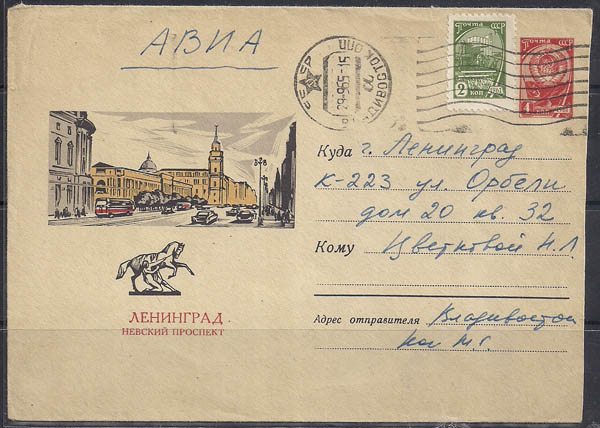 АВИА
СССР
ВЛАДИВОСТОК ОПП
29-965-15
ПОЧТА СССР
2
КОП
ПОЧТА СССР
4
Куда г. Ленинград
К-223 ул. Орбели
дом 20 кв. 32
Кому Цветковой Н.Л.
ЛЕНИНГРАД
НЕВСКИЙ ПРОСПЕКТ
Адрес отправителя Владивосток